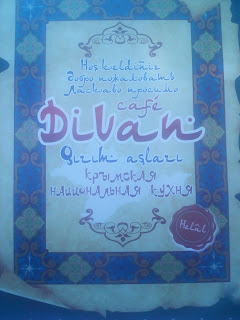 Hoş keldiñiz
Добро пожаловать
Ласкаво просимо
café
Divan
Qırım aşları
КРЫМСКАЯ
НАЦИОНАЛЬНАЯ КУХНЯ
Helâl